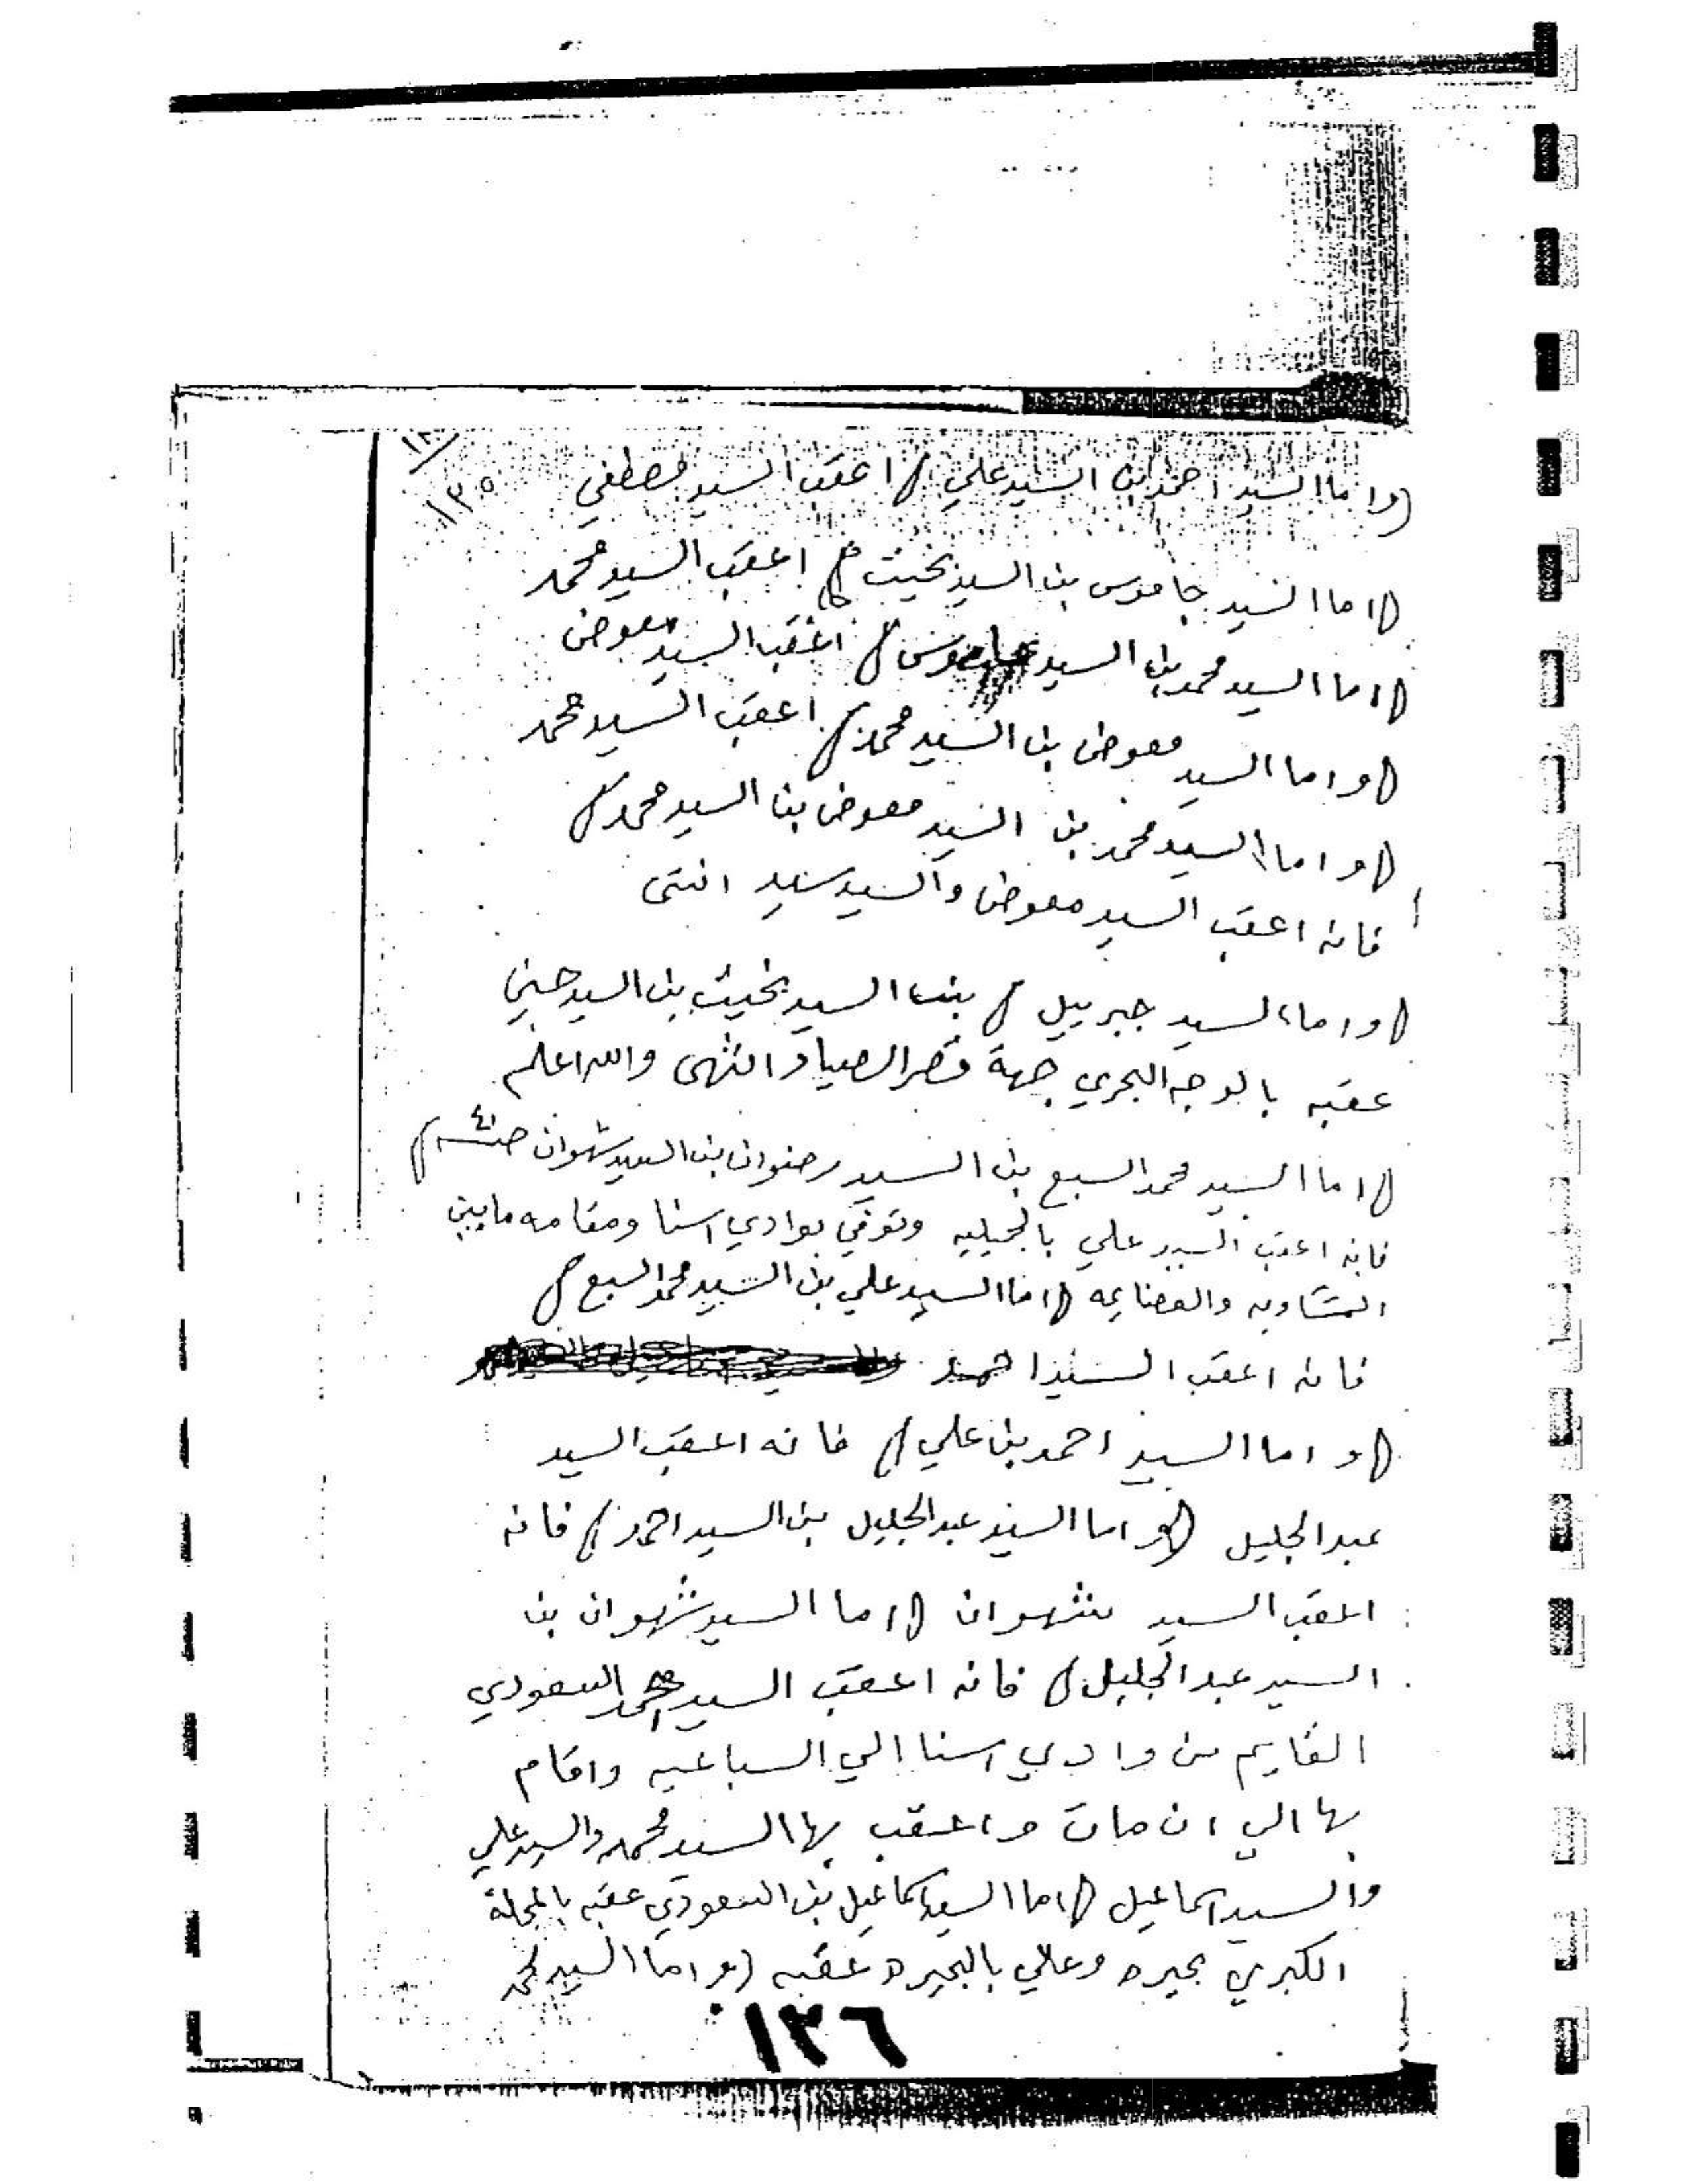 ١٢٥
(واما السيد احمد ابن السيد علي) اعقب السيد مصطفي
(اما السيد جاموس بن السيد بخيت) اعقب السيد محمد
(اما السيد محمد بن السيد جاموس) اعقب السيد معوض
(واما السيد معوض بن السيد محمد) اعقب السيد محمد
(واما السيد محمد بن السيد معوض بن السيد محمد)
فانه اعقب السيد معوض والسيد سيد انتهى
(واما السيد جبرييل) بن السيد بخيت بن السيد حسين
عقبه بالوجه البحري جهة قصر الصياد انتهى والله اعلم
(اما السيد محمد السبع بن السيد رضوان بن السيد شهوان
فانه اعقب السيد علي بالجبيليه وتوفي بوادي اسنا ومقامه مابين
المشاويه والعضايمه (اما السيد علي بن السيد محمد السبع)
فانه اعقب السيد احمد
(واما السيد احمد بن علي) فانه اعقب السيد
عبد الجليل (واما السيد عبد الجليل بن السيد احمد) فانه
اعقب السيد شهوان (اما السيد شهوان بن
السيد عبد الجليل) فانه اعقب السيد محمد السعودي
القايم من وادي اسنا الي السباعيه واقام
بها الي ان مات واعقب بها السيد محمد والسيد علي
والسيد اسماعيل (اما السيد اسماعيل بن السعودي عقبه بالمحلة
الكبري بحيره وعلي بالبحيره عقبه (واما السيد محمد
١٢٦